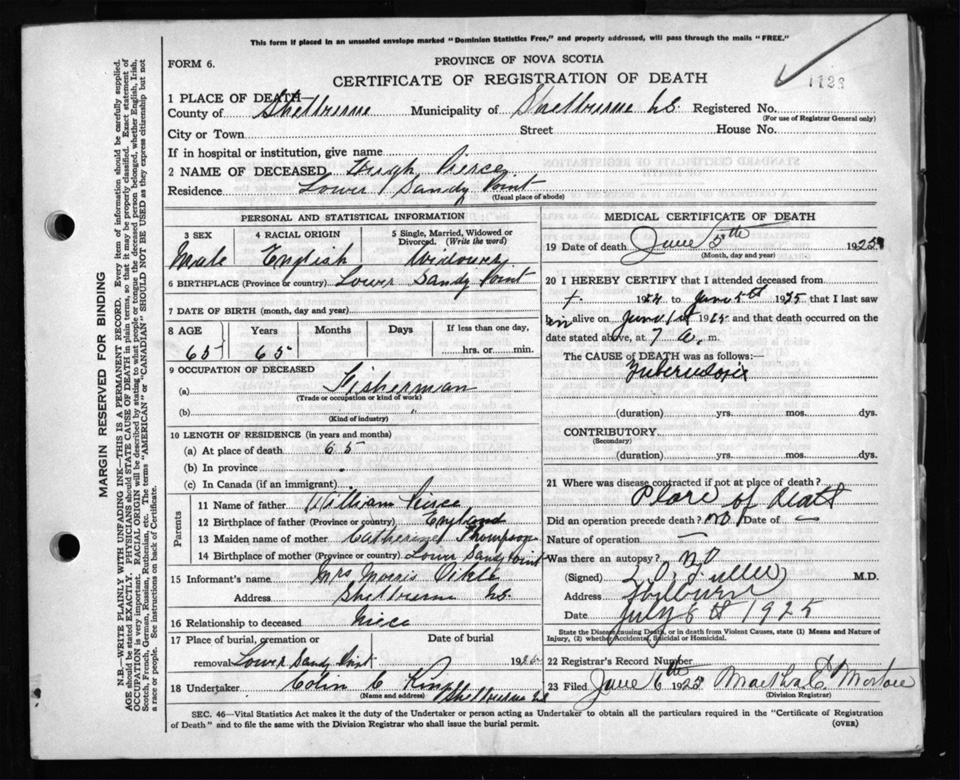 This form if placed in an unsealed envelope marked "Dominion Statistics Free," and properly addressed, will pass through the mails "FREE."
FORM 6.
PROVINCE OF NOVA SCOTIA
CERTIFICATE OF REGISTRATION OF DEATH
1123
1 PLACE OF DEATH—
County of Shelburne Municipality of Shelburne N.S. Registered No.
(For use of Registrar General only)
City or Town Street House No.
If in hospital or institution, give name
2 NAME OF DECEASED Hugh Pierce
Residence Lower Sandy Point
(Usual place of abode)
PERSONAL AND STATISTICAL INFORMATION
3 SEX 4 RACIAL ORIGIN 5 Single, Married, Widowed or Divorced. (Write the word)
Male English Widower
6 BIRTHPLACE (Province or country) Lower Sandy Point
7 DATE OF BIRTH (month, day and year)
8 AGE Years Months Days If less than one day,
65 65 hrs. or min.
9 OCCUPATION OF DECEASED
(a) Fisherman
(Trade or occupation or kind of work)
(b) "
(Kind of industry)
10 LENGTH OF RESIDENCE (in years and months)
(a) At place of death 65
(b) In province "
(c) In Canada (if an immigrant)
Parents
11 Name of father William Peirce
12 Birthplace of father (Province or country) England
13 Maiden name of mother Catherine Thompson
14 Birthplace of mother (Province or country) Lower Sandy Point
15 Informant's name Mrs Morris
Address Shelburne NS
16 Relationship to deceased Niece
17 Place of burial, cremation or Date of burial
removal Lower Sandy Point 1925
18 Undertaker Colin C King
(Name and address) Shelburne NS
MEDICAL CERTIFICATE OF DEATH
19 Date of death June 5th 1925
(Month, day and year)
20 I HEREBY CERTIFY that I attended deceased from
1924 to June 5th 1925 that I last saw
him alive on June 1st 1925 and that death occurred on the
date stated above, at 7 a. m.
The CAUSE OF DEATH was as follows:—
Tuberculosis
(duration) yrs. mos. dys.
CONTRIBUTORY
(Secondary)
(duration) yrs. mos. dys.
21 Where was disease contracted if not at place of death?
Place of death
Did an operation precede death? no Date of —
Nature of operation —
Was there an autopsy? no
(Signed) Fuller M.D.
Address
Date July 6th 1925
State the Disease causing Death, or in death from Violent Causes, state (1) Means and Nature of
Injury, (2) whether Accidental, Suicidal or Homicidal.
22 Registrar's Record Number
23 Filed June 6th 1925 Martha E Morton
(Division Registrar)
SEC. 46—Vital Statistics Act makes it the duty of the Undertaker or person acting as Undertaker to obtain all the particulars required in the "Certificate of Registration
of Death" and to file the same with the Division Registrar who shall issue the burial permit. (OVER)
MARGIN RESERVED FOR BINDING
N.B.—WRITE PLAINLY WITH UNFADING INK—THIS IS A PERMANENT RECORD. Every item of information should be carefully supplied.
AGE should be stated EXACTLY. PHYSICIANS should STATE CAUSE OF DEATH in plain terms, so that it may be properly classified. Exact statement of
OCCUPATION is very important. RACIAL ORIGIN will be described by stating to what people or tongue the deceased person belonged, whether English, Irish,
Scotch, French, German, Russian, Ruthenian, etc. The terms "AMERICAN" or "CANADIAN" SHOULD NOT BE USED as they express citizenship but not
a race or people. See instructions on back of Certificate.